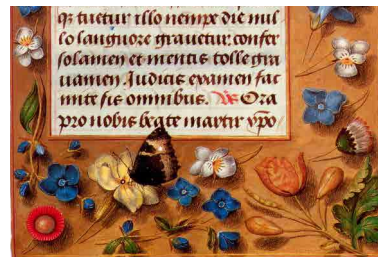 qi tuetur illo nempe die nul
lo languore gravetur. confer
solamen et mentis tolle gra
uamen. Iudicis examen fac
mite sis omnibus. Ora
pro nobis beate martir